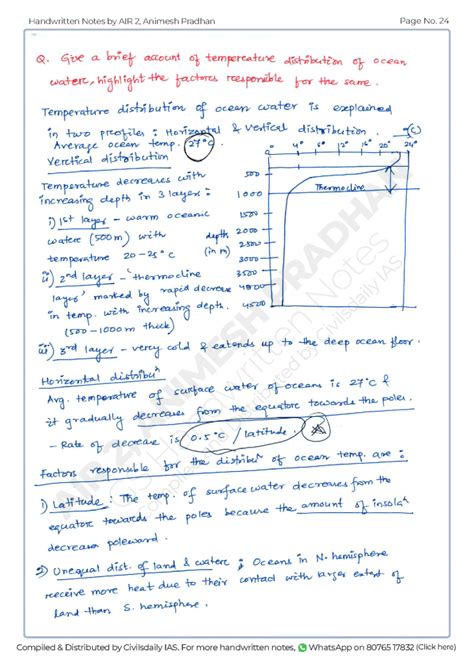 Handwritten Notes by AIR 2, Animesh Pradhan
Page No. 24
Q. Give a brief account of temperature distribution of ocean
water, highlight the factors responsible for the same.
Temperature distribution of ocean water is explained
in two profiles : Horizontal & Vertical distribution.
Average ocean temp. 27°C.
Vertical distribution
Temperature decreases with
increasing depth in 3 layers :
i) 1st layer - warm oceanic
water (500m) with
temperature 20-25°C
ii) 2nd layer - thermocline
layer marked by rapid decrease
in temp. with increasing depth.
(500-1000m thick)
(°C)
0° 4° 8° 12° 16° 20° 24°
500
1000
1500
depth 2000
2500
(in m) 3000
3500
4000
4500
Thermocline
iii) 3rd layer - very cold & extends up to the deep ocean floor.
Horizontal distribuⁿ
Avg. temperature of surface water of oceans is 27°C &
it gradually decreases from the equator towards the poles.
- Rate of decrease is 0.5°C / latitude.
Factors responsible for the distribuⁿ of ocean temp. are :
1) Latitude : The temp. of surface water decreases from the
equator towards the poles because the amount of insolaⁿ
decrease poleward.
2) Unequal dist. of land & water : Oceans in N. hemisphere
receive more heat due to their contact with larger extent of
land than S. hemisphere.
AIR 2, ANIMESH PRADHAN
Handwritten Notes
Compiled & Distributed by Civilsdaily IAS
Compiled & Distributed by Civilsdaily IAS. For more handwritten notes, WhatsApp on 8076517832 (Click here)